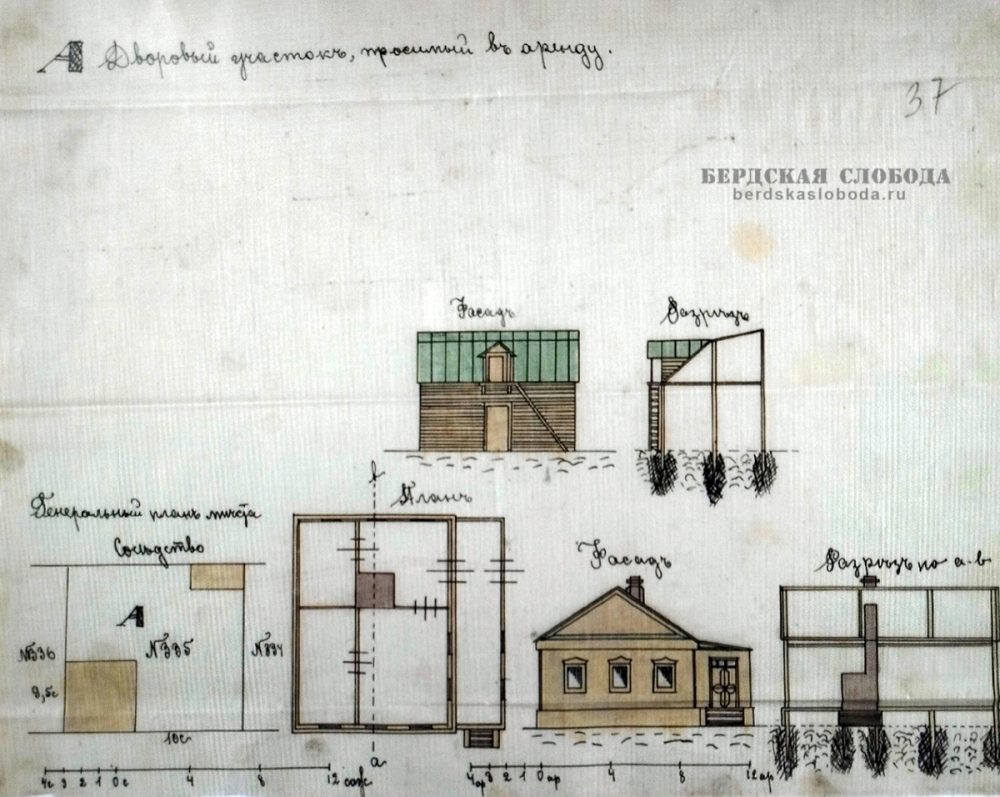 А Дворовый участокъ, просимый въ аренду.
37
БЕРДСКАЯ СЛОБОДА
berdskasloboda.ru
Фасадъ
Разрѣзъ
в
Планъ
Генеральный планъ мѣста
Сосѣдство
А
№336
№335
№334
10с
а
Фасадъ
Разрѣзъ по а-в
4с 3 2 1 0с 4 8 12 саж
4ар 3 2 1 0ар 4 8 12ар